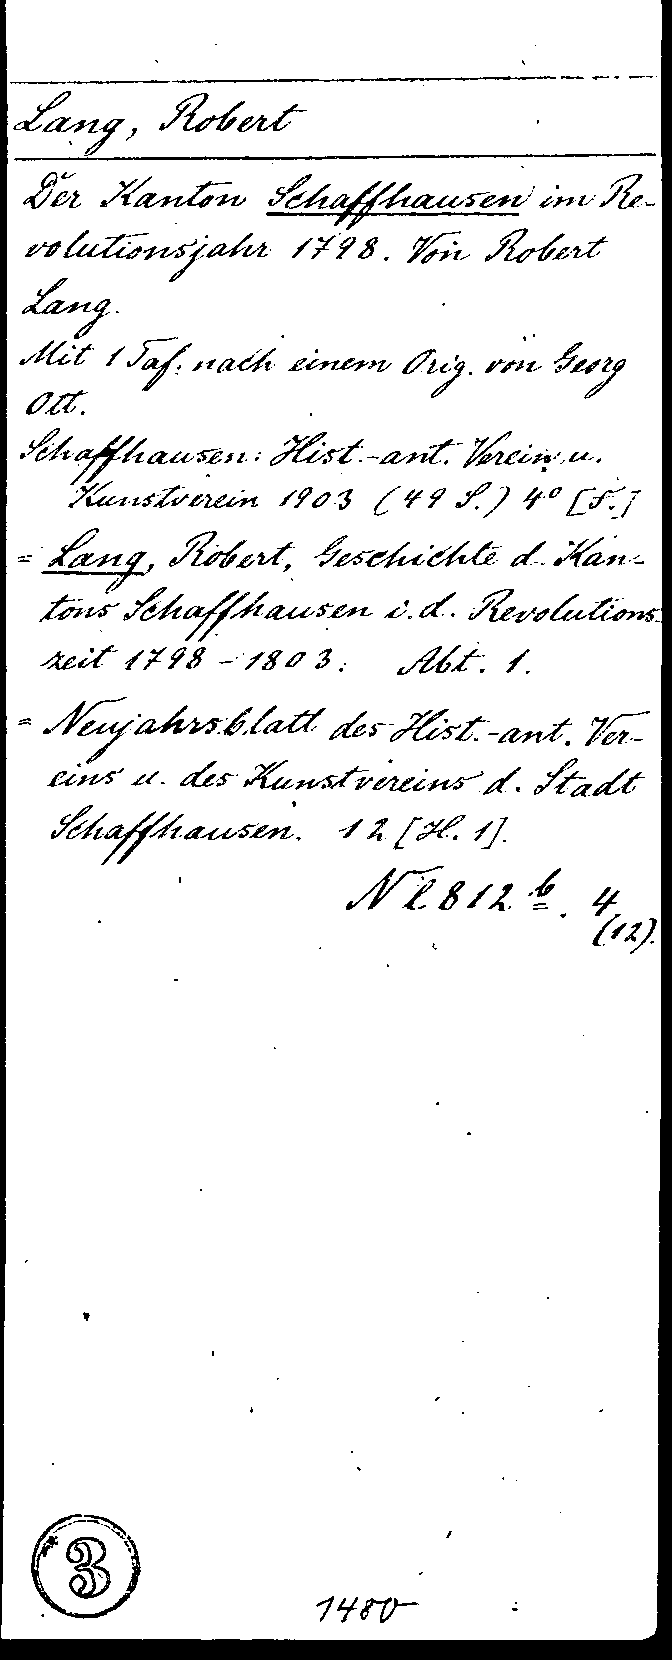 Lang, Robert
Der Kanton Schaffhausen im Re-
volutionsjahr 1798. Von Robert
Lang.
Mit 1 Taf. nach einem Orig. von Georg
Ott.
Schaffhausen: Hist.-ant. Verein u.
Kunstverein 1903 (49 S.) 4° [F.]
= Lang, Robert, Geschichte d. Kan-
tons Schaffhausen i. d. Revolutions-
zeit 1798-1803. Abt. 1.
= Neujahrsblatt des Hist.-ant. Ver-
eins u. des Kunstvereins d. Stadt
Schaffhausen. 12 [H. 1].
Nl 812 b. 4
(12).
3
1480